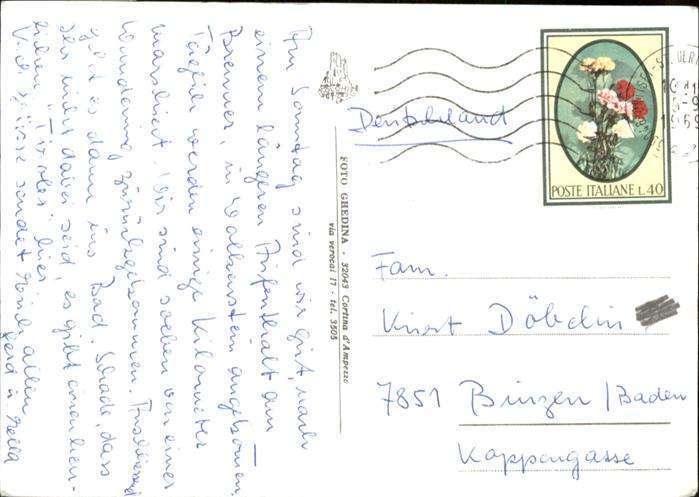 Am Sonntag sind wir gut, nach
einem längeren Aufenthalt am
Brenner, in Wolkenstein angekommen,
Täglich werden einige Kilometer
marschiert. Wir sind soeben von einer
Wanderung zurückgekommen. Anschliessend
geht es dann ins Bad. Schade, dass
Ihr nicht dabei seid, es gibt
hier.
V.l. Grüsse sendet Euch allen
FOTO GHEDINA - 32043 Cortina d'Ampezzo
via verocai 17 - tel. 3505
POSTE ITALIANE L. 40
Deutschland
Fam.
Kurt Döbelin
7851 Binzen/Baden
Kappengasse